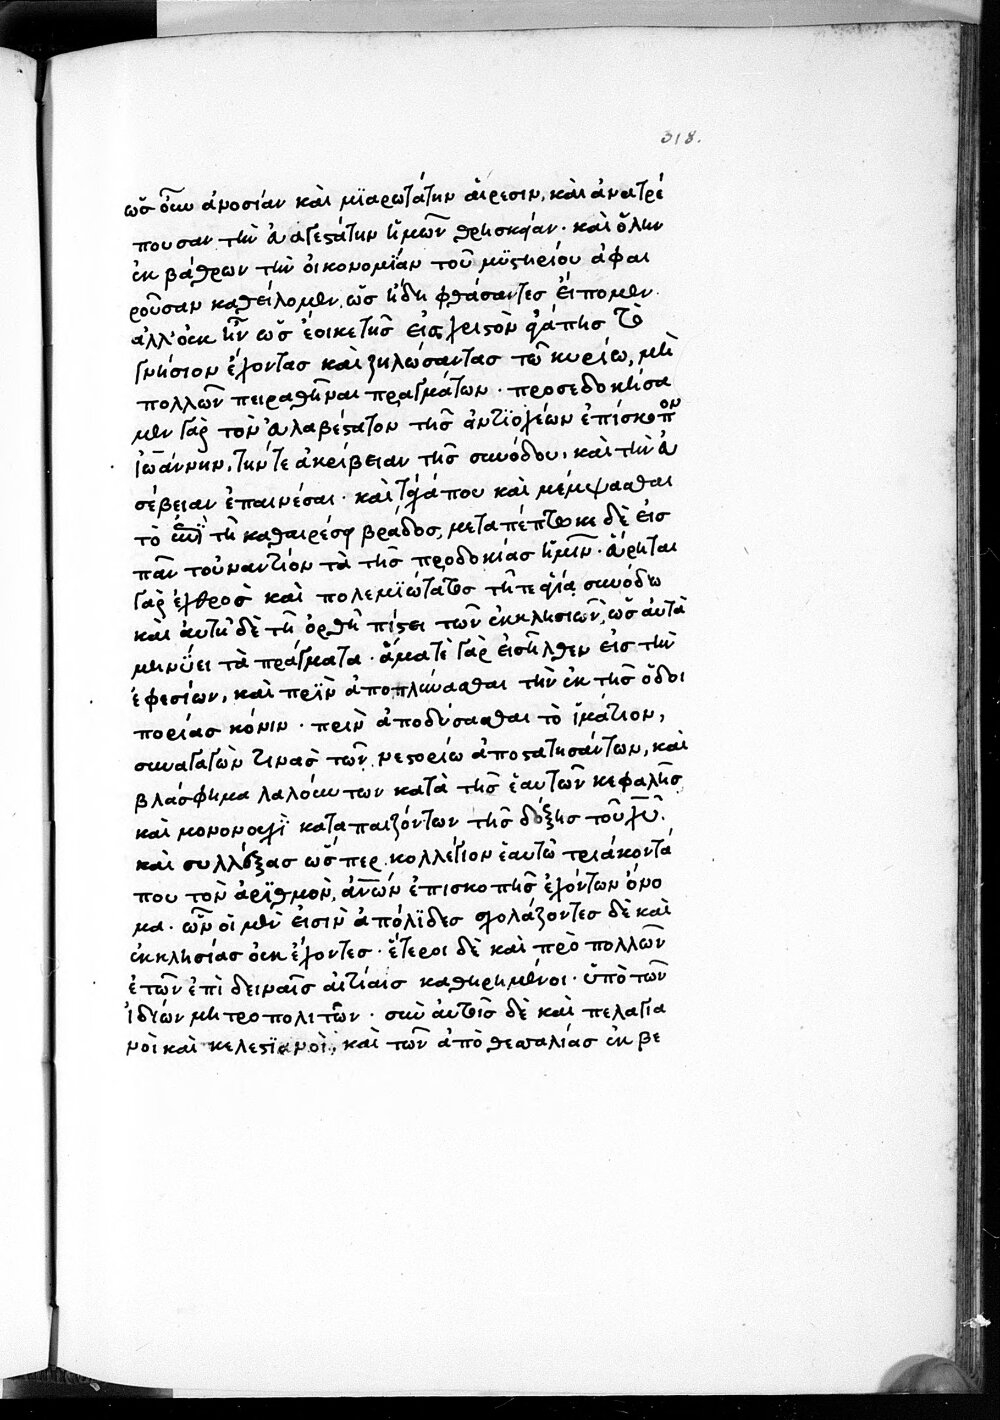 318.
ὡς οὖν ἀνοσίαν καὶ μϊαρωτάτην αἵρεσιν, καὶ ἀνατρέ
πουσαν τὴν εὐαγεστάτην ἡμῶν θρησκείαν· καὶ ὅλην
ἐκ βάθρων τὴν οἰκονομίαν τοῦ μϋστηρίου ἀφαι
ροῦσαν καθείλομεν, ὡς ἤδη φθάσαντες εἴπομεν.
ἀλλ' οὐκ ἦν ὡς ἔοικε τῆς εἰς χριστὸν ἀγάπης τὸ
γνήσιον ἔχοντας καὶ ζηλώσαντας τῶ κυρίω, μὴ
πολλῶν πειραθῆναι πραγμάτων· προσεδοκήσα
μεν γὰρ τὸν εὐλαβέστατον τῆς ἀντϊοχέων ἐπίσκοπον
ϊωάννην, τήν τε ἀκρίβειαν τῆς συνόδου, καὶ τὴν εὐ
σέβειαν ἐπαινέσαι· καὶ τάχα που καὶ μέμψασθαι
τὸ ἐπὶ τῆ καθαιρέσει βράδος, μεταπέπτωκε δὲ εἰς
πᾶν τοὐναντίον τὰ τῆς προδοκίας ἡμῖν· εὕρηται
γὰρ ἐχθρὸς καὶ πολεμϊώτατος τῆ τε ἁγία συνόδω
καὶ αὐτῆ δὲ τῆ ὀρθῆ πίστει τῶν ἐκκλησιῶν, ὡς αὐτὰ
μηνύει τὰ πράγματα· ἅμα τὲ γὰρ εἰσῆλθεν εἰς τὴν
ἐφεσίων, καὶ πρὶν ἀποπλύνασθαι τὴν ἐκ τῆς ὁδοι
πορίας κόνιν· πρὶν ἀποδύσασθαι τὸ ἱμάτιον,
συναγαγὼν τινὰς τῶν νεστορίω ἀποστατησάντων, καὶ
βλάσφημα λαλούντων κατὰ τῆς ἑαυτῶν κεφαλῆς
καὶ μονονουχὶ καταπαιζόντων τῆς δόξης τοῦ χῦ.
καὶ συλλέξας ὥσπερ κολλέγιον ἑαυτῶ τριάκοντά
που τὸν ἀρϊθμὸν, ἀνῶν ἐπισκοπῆς ἐχόντων ὄνο
μα· ὧν οἱ μὲν εἰσὶν ἀπόλϊδες σχολάζοντες δὲ καὶ
ἐκκλησίας οὐκ ἔχοντες· ἕτεροι δὲ καὶ πρὸ πολλῶν
ἐτῶν ἐπὶ δειναῖς αἰτίαις καθηρημένοι· ὑπὸ τῶν
ἰδίων μητροπολιτῶν· σὺν αὐτοῖς δὲ καὶ πελαγια
νοὶ καὶ κελεστϊανοὶ, καὶ τῶν ἀπὸ θεσσαλίας ἐκ βε